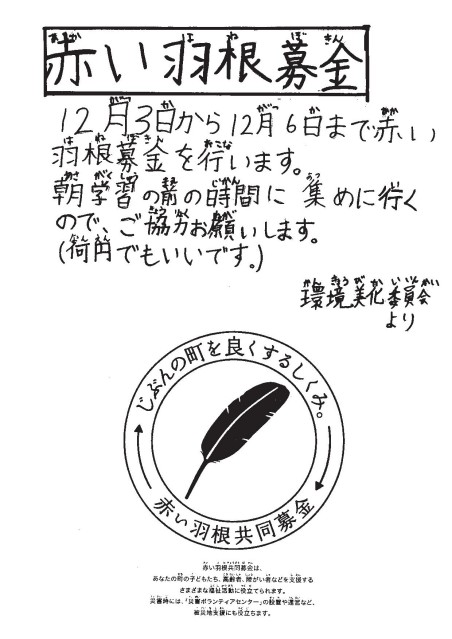 赤い羽根募金
12月3日から12月6日まで赤い
羽根募金を行います。
朝学習の前の時間に 集めに行く
ので、ご協力お願いします。
(荷円でもいいです。)
環境美化委員会
より
じぶんの町を良くするしくみ。
赤い羽根共同募金
赤い羽根共同募金は、
あなたの町の子どもたち、高齢者、障がい者などを支援する
さまざまな福祉活動に役立てられます。
災害時には、「災害ボランティアセンター」の設置や運営など、
被災地支援にも役立ちます。